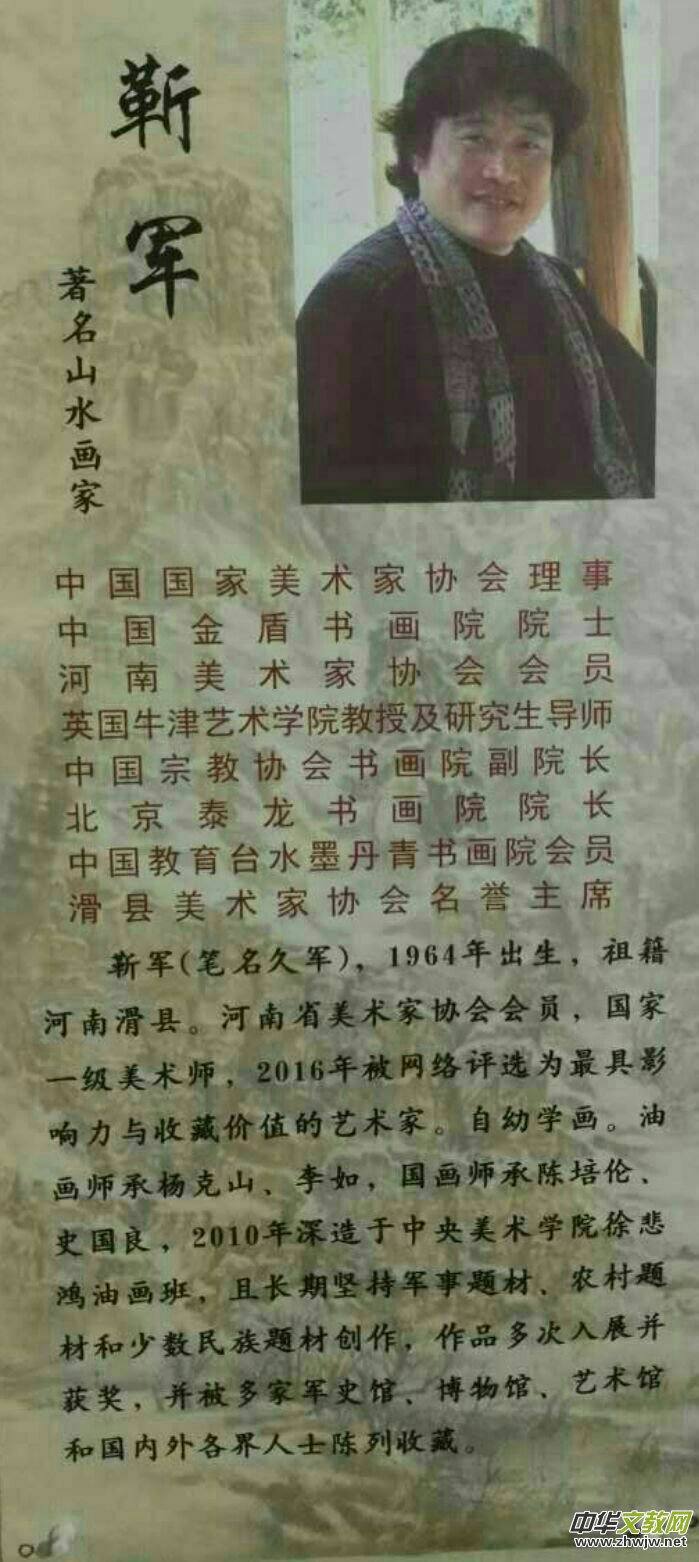 靳军
著名山水画家
中国国家美术家协会理事
中国金盾书画院院士
河南美术家协会会员
英国牛津艺术学院教授及研究生导师
中国宗教协会书画院副院长
北京泰龙书画院院长
中国教育台水墨丹青书画院会员
滑县美术家协会名誉主席
靳军(笔名久军)，1964年出生，祖籍
河南滑县。河南省美术家协会会员，国家
一级美术师，2016年被网络评选为最具影
响力与收藏价值的艺术家。自幼学画。油
画师承杨克山、李如，国画师承陈培伦、
史国良，2010年深造于中央美术学院徐悲
鸿油画班，且长期坚持军事题材、农村题
材和少数民族题材创作，作品多次入展并
获奖，并被多家军史馆、博物馆、艺术馆
和国内外各界人士陈列收藏。
中华文教网
www.zhwjw.net